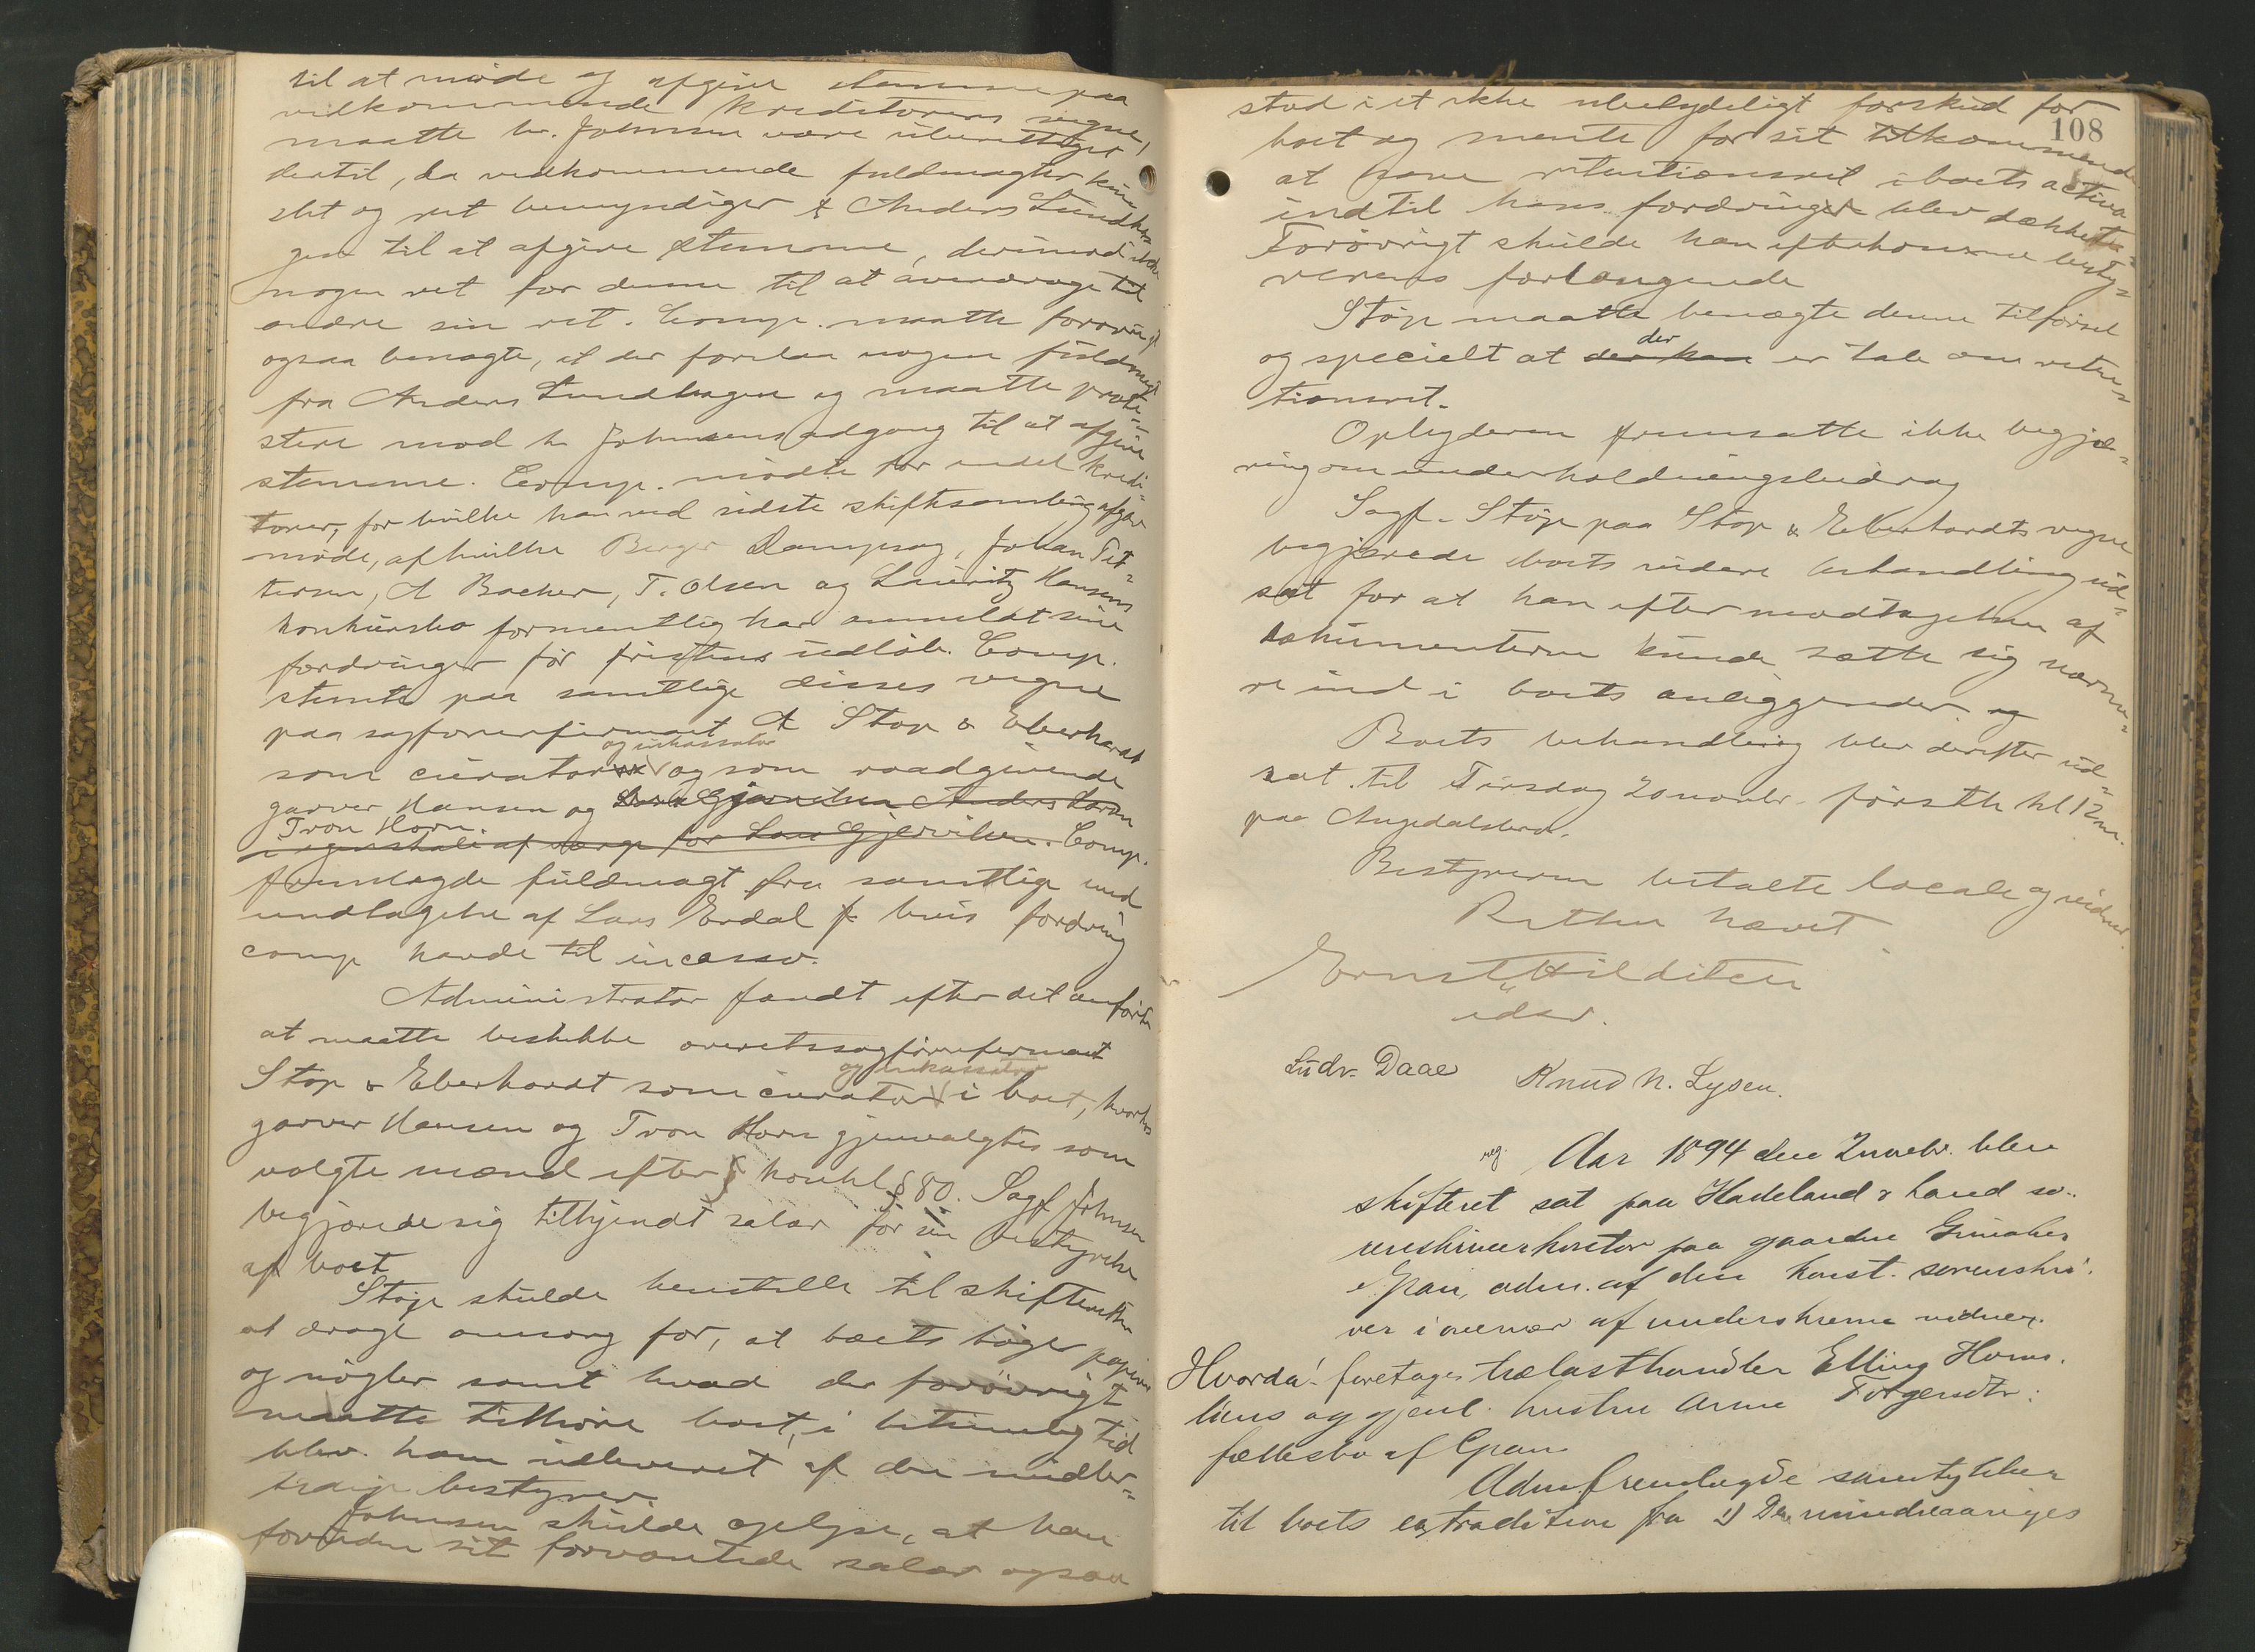 til at møde og afgive stemme paa
vedkommende kreditorers vegne,
maatte hr. Johnsen være uberettiget
dertil, da vedkommende fuldmagter kun
slet og ret bemyndiger Anders Lundha-
gen til at afgive stemme, derimod ikke
nogen ret for denne til at overdrage til
andre sin ret. Comp. maatte forøvrigt
ogsaa benægte, at der forelaa nogen fuldmagt
fra Anders Lundhagen og maatte prote-
stere mod hr Johnsens adgang til at afgive
stemme. Comp. mødte for endel kredi-
torer, for hvilke han ved sidste skiftesamling afgav
møde, af hvilke Berger Dampsag, Johan Pet-
tersen, A Backer, T. Olsen og Lauritz Hansens
konkursbo formentlig har anmeldt sine
fordringer før fristens udløb. Comp.
stemte paa samtlige disses vegne
paa sagførerfirmaet Støp & Eberhardt
som curator og inkassator og som raadgivende
garver Hansen og Lars Gjerviken Anders Larsen
Tron Horn
i egenskab af værge for Lars Gjerviken. Comp.
fremlagde fuldmagt fra samtlige med
undtagelse af Lars Erdal hvis fordring
comp havde til incasso.
Administrator fandt efter det anførte
at maatte beskikke overetssagførerfirmaet
Støp & Eberhardt som curator og inkassator i boet, hvorhos
garver Hansen og Tron Horn gjenvalgtes som
valgte mænd efter konkl § 80. Sagf Johnsen
begjærede sig tilkjendt salær for sin bestyrelse
af boet
Støp skulde henstille til skifteretten
at drage omsorg for, at boets bøger papirer
og nøgler samt hvad der forøvrigt
maatte tilhøre boet, i betimelig tid
blev ham udleveret af den midler-
tidige bestyrer.
Johnsen skulde oplyse, at han
foruden sit forventede salær ogsaa
108
stod i et ikke ubetydeligt forskud for
boet og mente for sit tilkommende
at have retentionsret i boets activa
indtil hans fordringer blev dækket.
Forøvrigt skulde han efterkomme besty-
rerens forlangende
Støp maatte benægte denne tilførsel
og specielt at der kan der er tale om reten-
tionsret.
Opbyderen fremsatte ikke begjæ-
ring om underholdningsbidrag
Sagf. Støp paa Støp & Eberhardts vegne
begjærede boets videre behandling ud-
sat for at han efter modtagelsen af
dokumenterne kunde sætte sig nærme-
re ind i boets anliggender og
Boets behandling blev derefter ud-
sat til Tirsdag 20 novbr. førstk kl 12 m.
paa Augedalsbro.
Bestyreren betalte locale og vidner.
Retten hævet
Ernst Hilditch
edsv.
Ludv. Daae Knud N. Lysen.
reg. Aar 1894 den 2 novbr. blev
skifteret sat paa Hadeland & Land so-
renskriverkontor paa gaarden Grinaker
i Gran, adm. af den konst. sorenskri-
ver i overvær af underskrevne vidner.
Hvorda! foretoges trælasthandler Elling Horns-
liens og gjenl. hustru Anne Torgersdtr:
fællesbo af Gran
Adm. fremlagde samtykker
til boets extradition fra 1) De mindreaariges